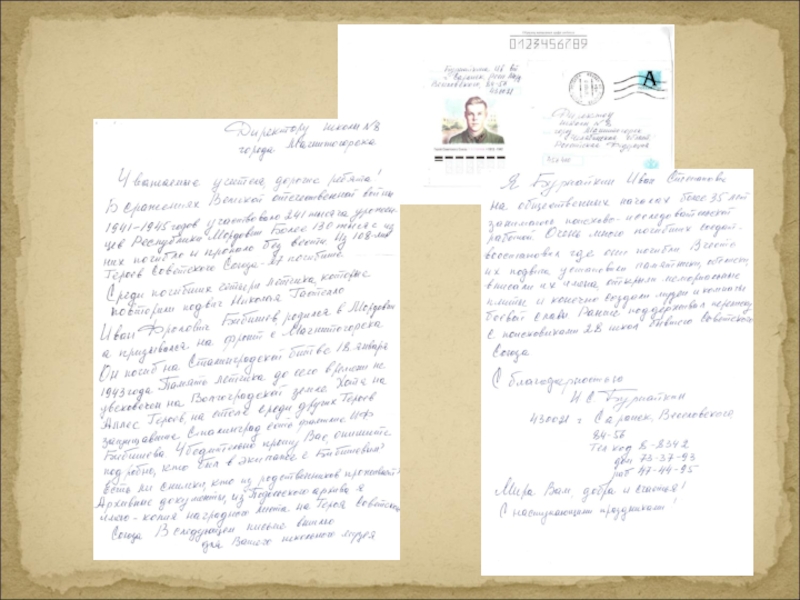 0123456789
г. Саранск,
Веселовского, 84-56
430021
А
Директору
школы №8
Директору школы №8
города Магнитогорска
Уважаемые учителя, дорогие ребята!
В сражениях Великой отечественной войны
1941-1945 годов участвовало 241 тысяча уроженцев
Республики Мордовия Более 130 тысяч из
них погибло и пропало без вести. Из 108-ми
Героев Советского Союза - погибли.
Среди погибших четыре летчика, которые
повторили подвиг Николая Гастелло
Иван Фролович Бибишев, родился в Мордовии
а призывался на фронт с Магнитогорска
Он погиб на Сталинградской битве 18 января
1943 года Память летчика до сего времени не
увековечен на Волгоградской земле Хотя на
Аллее Героев, на стеле среди других Героев
защищавших Сталинград есть фамилия
Бибишева. Убедительно прошу Вас, опишите
подробно, кто был в экипаже с Бибишевым?
Есть ли снимки, кто из родственников проживает?
Архивные документы, из Подольского архива я
копия наградного листа на Героя Советского
Союза В следующем письме вышлю
для Вашего школьного музея
Я Бурнайкин Иван Степанович
на общественных началах более 35 лет
занимаюсь поисково-исследовательской
работой. Очень много погибших солдат
восстановил где они погибли В честь
их подвига, установил памятники, обелиски,
вписали их имена, открыли мемориальные
плиты и конечно создали музеи и комнаты
боевой славы Раньше поддерживал переписку
с поисковиками 28 школ бывшего Советского
Союза
С благодарностью
И С Бурнайкин
430021 г Саранск, Веселовского
84-56
Тел код 8-8342
дом 73-37-93
раб 47-44-95
Мира Вам, добра и счастья!
С наступающим праздником!